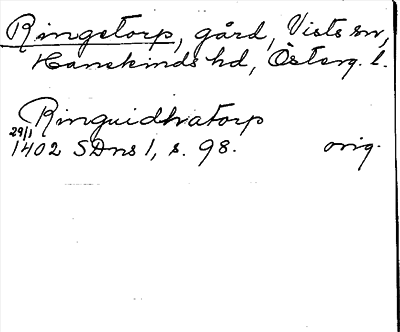 Ringstorp, gård, Vists sn,
Hanekinds hd, Österg. l.
Ringuidhatorp
29/1
1402 SDns 1, s. 98. orig.